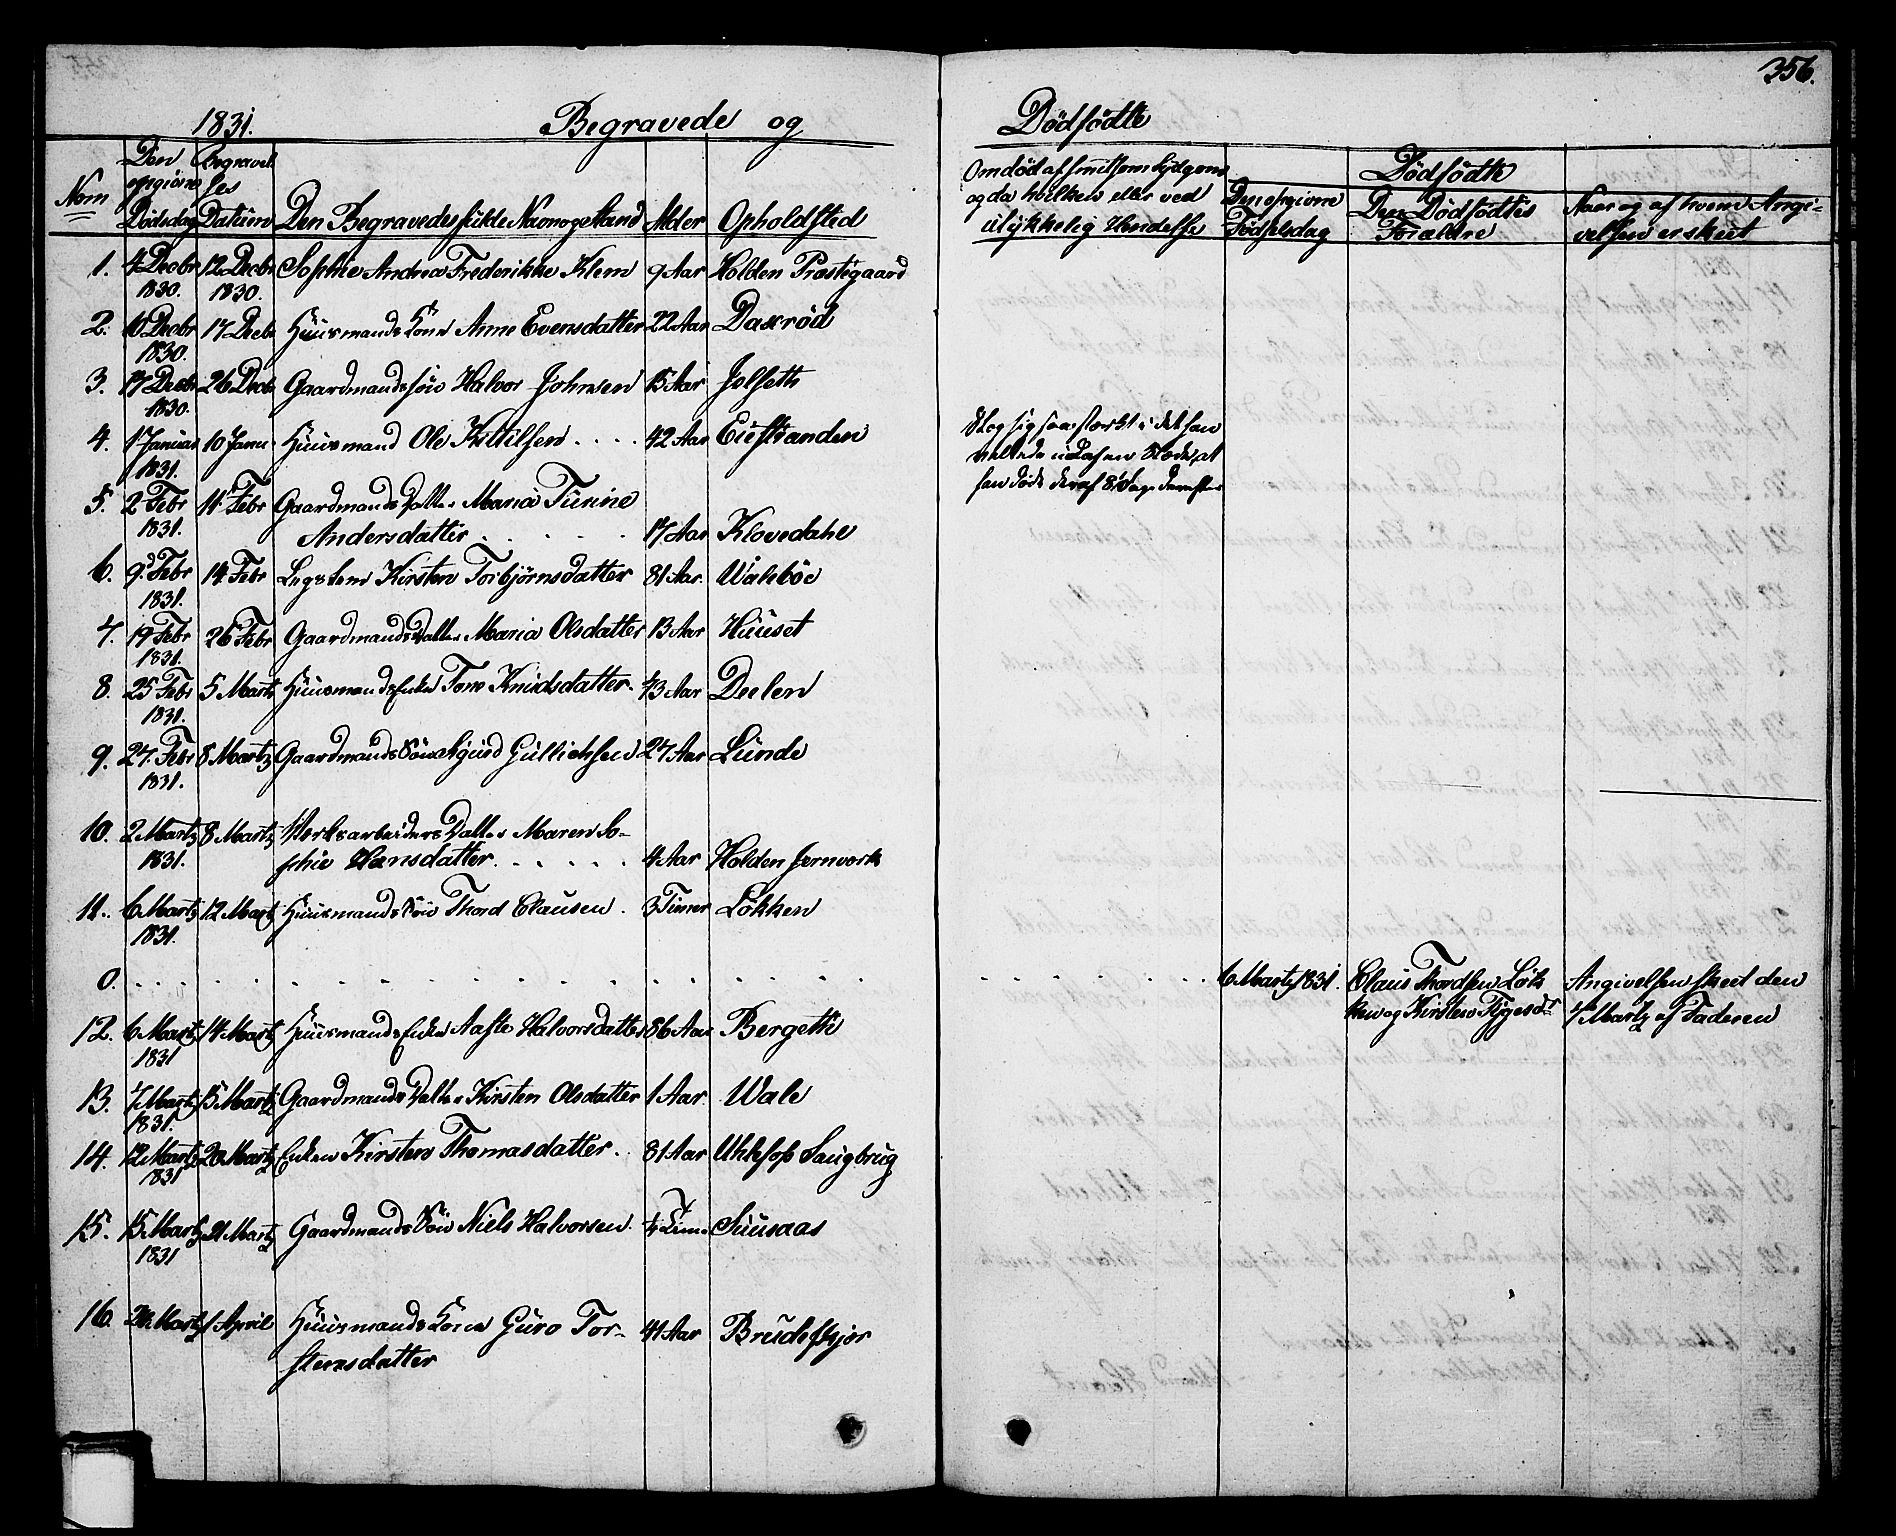 356.
1831. Begravede og Dödfödte
Nom
Den opgivne Dödsdag
Begravelses Datum
Den Begravedes fulde Navn og Stand
Alder
Opholdsted
Om död af smitsom Sydgom
og da hvilken eller ved
ulykkelig Hendelse
Dödfödte
Den opgivne
Födselsdag
Den Dödfödtes
Forældre
Naar og af hvem Angi-
velsen er skeet
1. 4 Decbr 1830. 12 Decbr 1830. Sophie Andrea Frederikke Klem 9 Aar Holden Præstegaard
2. 10 Decbr 1830. 17 Decbr Huusmands Kone Anne Evensdatter 22 Aar Daxröd
3. 17 Decbr 1830. 26 Decbr Gaardmands sön Halvor Johnsen 15 Aar Jolseth
4. 1 Januar 1831. 10 Janu Huusmand Ole Kittilsen . . . . 42 Aar Eiestranden
Slog sig saa stærkt i det han
veltede i Læsen Slæde, at
han döde deraf 8 Dage derefter
5. 2 Febr 1831. 11 Febr Gaardmands Datter Maria Turine
Andersdatter . . . . . 17 Aar Klovedahl
6. 9 Febr 1831. 14 Febr Legslem Kirsten Torbjörnsdatter 81 Aar. Waleböe
7. 19 Febr 1831. 26 Febr Gaardmands Datter Maria Olsdatter 13 Aar Huuset
8. 25 Febr 1831. 5 Martz Huusmands Enke Tone Knudsdatter. 73 Aar Deelen
9. 27. Febr 1831. 8 Martz Gaardmands Sön Sigurd Gullichsen 27 Aar Lunde
10. 2 Martz 1831. 8 Martz Verksarbeiders Datter Maren So-
phie Hansdatter. . . . . . 4 Aar Holden Jernverk
11. 6 Martz 1831. 12 Martz Huusmands Sön Thord Clausen . 3 Timer Lökken
0. . . . . . . . . . . 6 Martz 1831. Claus Thordsen Lök
ken og Kirsten Tygesdr
Angivelsen skeet den
7 Martz af Faderen
12. 6 Martz 1831 14 Martz Huusmands Enke Aaste Halvorsdatter 86 Aar Bergeth
13. 7 Martz 1831. 15 Martz Gaardmands Datter Kirsten Olsdatter 1 Aar. Wale
14. 12 Martz 1831 20 Martz Enken Kirsten Thomasdatter . 81 Aar Uhlefos Saugbrug
15. 15 Martz 1831 21 Martz Gaardmands Sön Niels Halvorsen. Suusaas
16. 24 Martz 1 April Huusmands Kone Guro Tor-
stensdatter 41 Aar Brudefjor